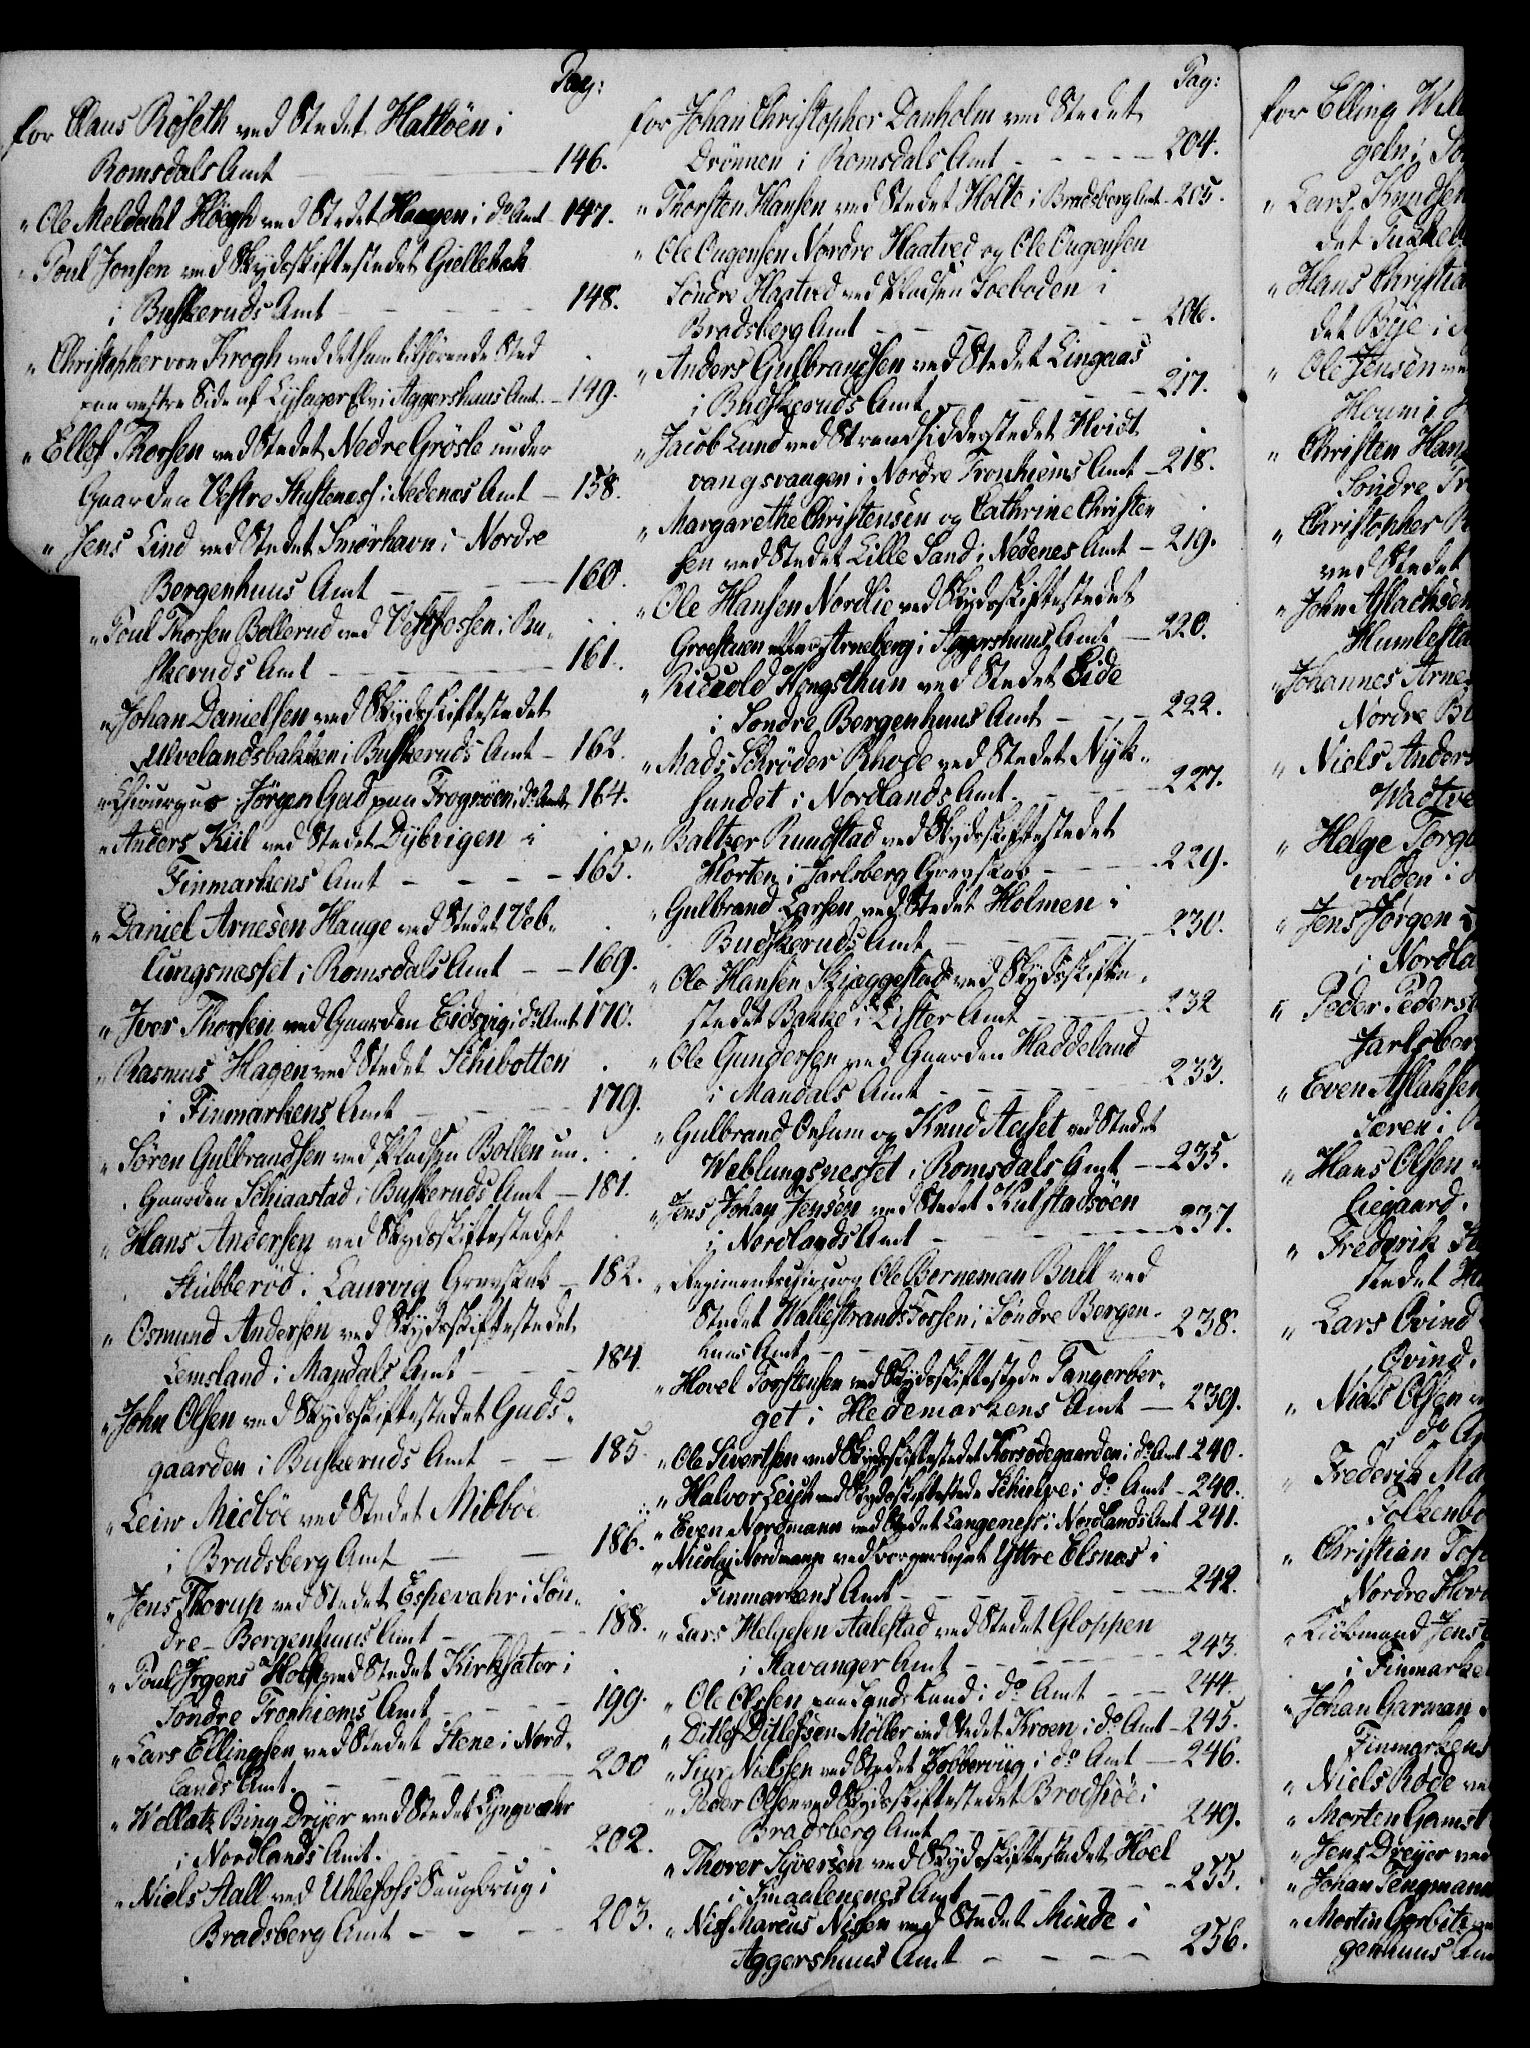 Pag:
for Claus Röseth ved Stedet Hatlöen i
Romsdals Amt 146.
" Ole Meldahl Höegh ved Stedet Haagen i do Amt 147.
" Poul Jonsen ved Skydsskiftestedet Giellebek
i Buskeruds Amt 148.
" Christopher von Krogh ved det ham tilhørende Sted
paa vestre Side af Lysager Elv i Aggershuus Amt. 149.
" Ellef Thorsen ved Stedet Nedre Grösle under
Gaarden Vestre i Nedenes Amt 158.
" Jens Lind ved Stedet Smörhavn i Nordre
Bergenhuus Amt 160.
" Poul Thorsen Bollerud ved Vestfossen i Bu-
skeruds Amt 161.
" Johan Danielsen ved Skydsskiftestedet
Ulvelandsbakken i Buskeruds Amt 162.
" Chirurgus Jörgen Gad paa Frognöen i do Amt 164.
" Anders Kiil ved Stedet Dybvigen i
Finmarkens Amt 165.
" Daniel Arnesen Hauge ved Stedet Veb-
lungsnesset i Romsdals Amt 169.
" Iver Thorsen ved Gaarden Eidsvig i do Amt 170.
" Rasmus Hagen ved Stedet Schibotten
i Finmarkens Amt 179.
" Sören Gulbrandsen ved Pladsen Bollen un.
Gaarden Schiaastad i Buskeruds Amt 181.
" Hans Andersen ved Skydsskiftestedet
Stubberöd i Laurvig Grevskab 182.
" Osmund Andersen ved Skydsskiftestedet
Lemsland i Mandals Amt 184.
" John Olsen ved Skydsskiftestedet Guds-
gaarden i Buskeruds Amt 185.
" Leiw Midböe ved Stedet Midböe
i Bradsberg Amt 186.
" Jens Thorup ved Stedet Espevahr i Sön-
dre Bergenhuus Amt 188.
" Poul Irgens Holk ved Stedet Kirksäter i
Söndre Tronhiems Amt 199.
" Lars Ellingsen ved Stedet Stene i Nord-
lands Amt. 200
" Wollatz Bing Dryer ved Stedet Lyngvahr
i Nordlands Amt. 202.
" Niels Aall ved Uhlefoss Saugbrug i
Bradsberg Amt 203.
Pag:
for Johan Christopher Danholm ved Stedet
Drönnen i Romsdals Amt 204.
" Thorsten Hansen ved Stedet Holte i Bradsberg Amt 205.
" Ole Ougensen Nordre Haatved og Ole Ougensen
Söndre Haatved ved Pladsen Soeboden i
Bradsberg Amt 206.
" Anders Gulbrandsen ved Stedet Lingaas
i Budskeruds Amt 217.
" Jacob Lund ved Strandsidderstedet Hvidt
vangsvangen i Nordre Tronhiems Amt 218.
" Margarethe Christensen og Cathrine Christen
sen ved Stedet Lille Sand i Nedenes Amt 219.
" Ole Hansen Nordlie ved Skydsskiftestedet
Groestuen eller Arneberg i Aggershuus Amt 220.
" Kongsthun ved Stedet Eide
i Sondre Bergenhuus Amt 222.
" Mads Schröder Rhode ved Stedet Nyk-
sundet i Nordlands Amt. 227.
" Baltzer Rundstad ved Skydsskiftestedet
Horten i Jarlsberg Grevskab 229.
" Gulbrand Larsen ved Stedet Holmen i
Budskeruds Amt 230.
" Ole Hansen Skjæggestad ved Skydsskifte-
stedet Bakke i Lister Amt 232
" Ole Gundersen ved Gaarden Haddeland
i Mandals Amt 233.
" Gulbrand Onsum og Knud Aaset ved Stedet
Weblungsnesset i Romsdals Amt 235.
" Jens Johan Jensen ved Stedet Kulstadsöen
i Nordlands Amt 237.
" Regimentschirurg Ole Borneman Bull ved
Stedet Wallestrands Fossen i Söndre Bergen-
huus Amt 238.
" Hovel Torstensen ved Skydsskiftestedet Tangerber-
get i Hedemarkens Amt 239.
" Ole Sivertsen ved Skydsskiftestedet Korsödegaarden i do Amt 240.
" Halvor Leich ved Skydsskiftestedet Schiulve i do Amt 240.
" Even Nordmann ved Stedet Langeness i Nordlands Amt 241.
" Nicolaj Nordmann ved Stedet Yttre Elsnes i
Finmarkens Amt 242.
" Lars Helgesen Aalestad ved Stedet Gloppen
i Stavanger Amt 243.
" Ole Olssen paa Lands Land i do Amt 244.
" Ditlef Ditlefsen Möller ved Stedet Kroen i do Amt 245.
" Siur Nielssen ved Stedet Kobbervig i do Amt 246.
" Peder Olsen ved Skydsskiftestedet Brodsiöe i
Bradsberg Amt 249.
" Thorer Syversen ved Skydsskiftestedet Hoel
i Smaalenenes Amt 255.
" Niss Marcus Nissen ved Stedet Minde i
Aggershuus Amt 256.
for Elling Wil
geln i Sö
" Lars Knudsen
det
" Hans Christia
det Bye i
" Ole Jensen ve
Houm i
" Christen Han
Söndre Tr
" Christopher
ved Stedet
" John Aslachsen
Humlesta
" Johannes Arne
Nordre B
" Niels Anders
Wadtve
" Helge Torge
volden i
" Jens Jörgen
i Nordla
" Peder Peders
Jarlsber
" Even Aslaksen
Særen i
" Hans Olsen
liegaard.
" Frederik
stedet
" Lars Ovind
Ovind.
" Niels Olsen
do A
" Frederik Ma
Folkenbo
" Christian Top
Nordre Hov
" Kiöbmand Jens
i Finmarke
" Johan Garman
Finmarkens
" Niels Röde ve
" Morten Gamst
" Jens Dreyer ved
" Johan Tengmann
" Mortin Gorbitz
genhuus Am